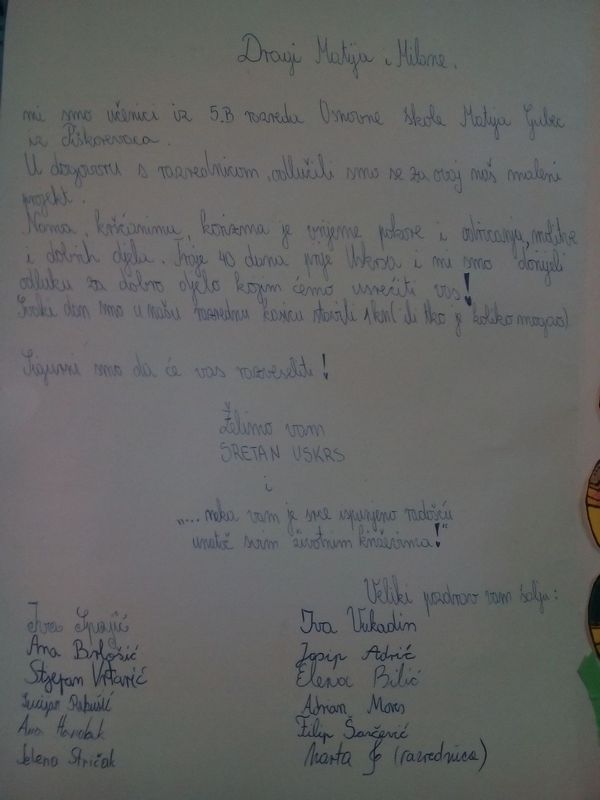 Dragi Matija i Milane.
mi smo učenici iz 5.B razreda Osnovne škole Matija Gubec
iz Piškorevaca.
U dogovoru s razrednicom, odlučili smo se za ovaj naš maleni
projekt.
Nama, kršćanima, korizma je vrijeme pokore i odricanja, molitve
i dobrih djela. Traje 40 dana prije Uskrsa i mi smo donijeli
odluku za dobro djelo kojim ćemo usrećiti vas!
Svaki dan smo u našu razrednu kasicu stavili 1kn( ili tko je koliko mogao)
Sigurni smo da će vas razveseliti!
Želimo vam
SRETAN USKRS
i
„... neka vam je srce ispunjeno radošću
unatoč svim životnim križevima!"
Veliki pozdrav vam šalju:
Iva Spajić
Iva Vukadin
Ana
Josip Adrić
Stjepan Vrtarić
Elena Bilić
Lucijan
Adrian
Ana
Filip Šarčević
Jelena Stričak
Marta (razrednica)